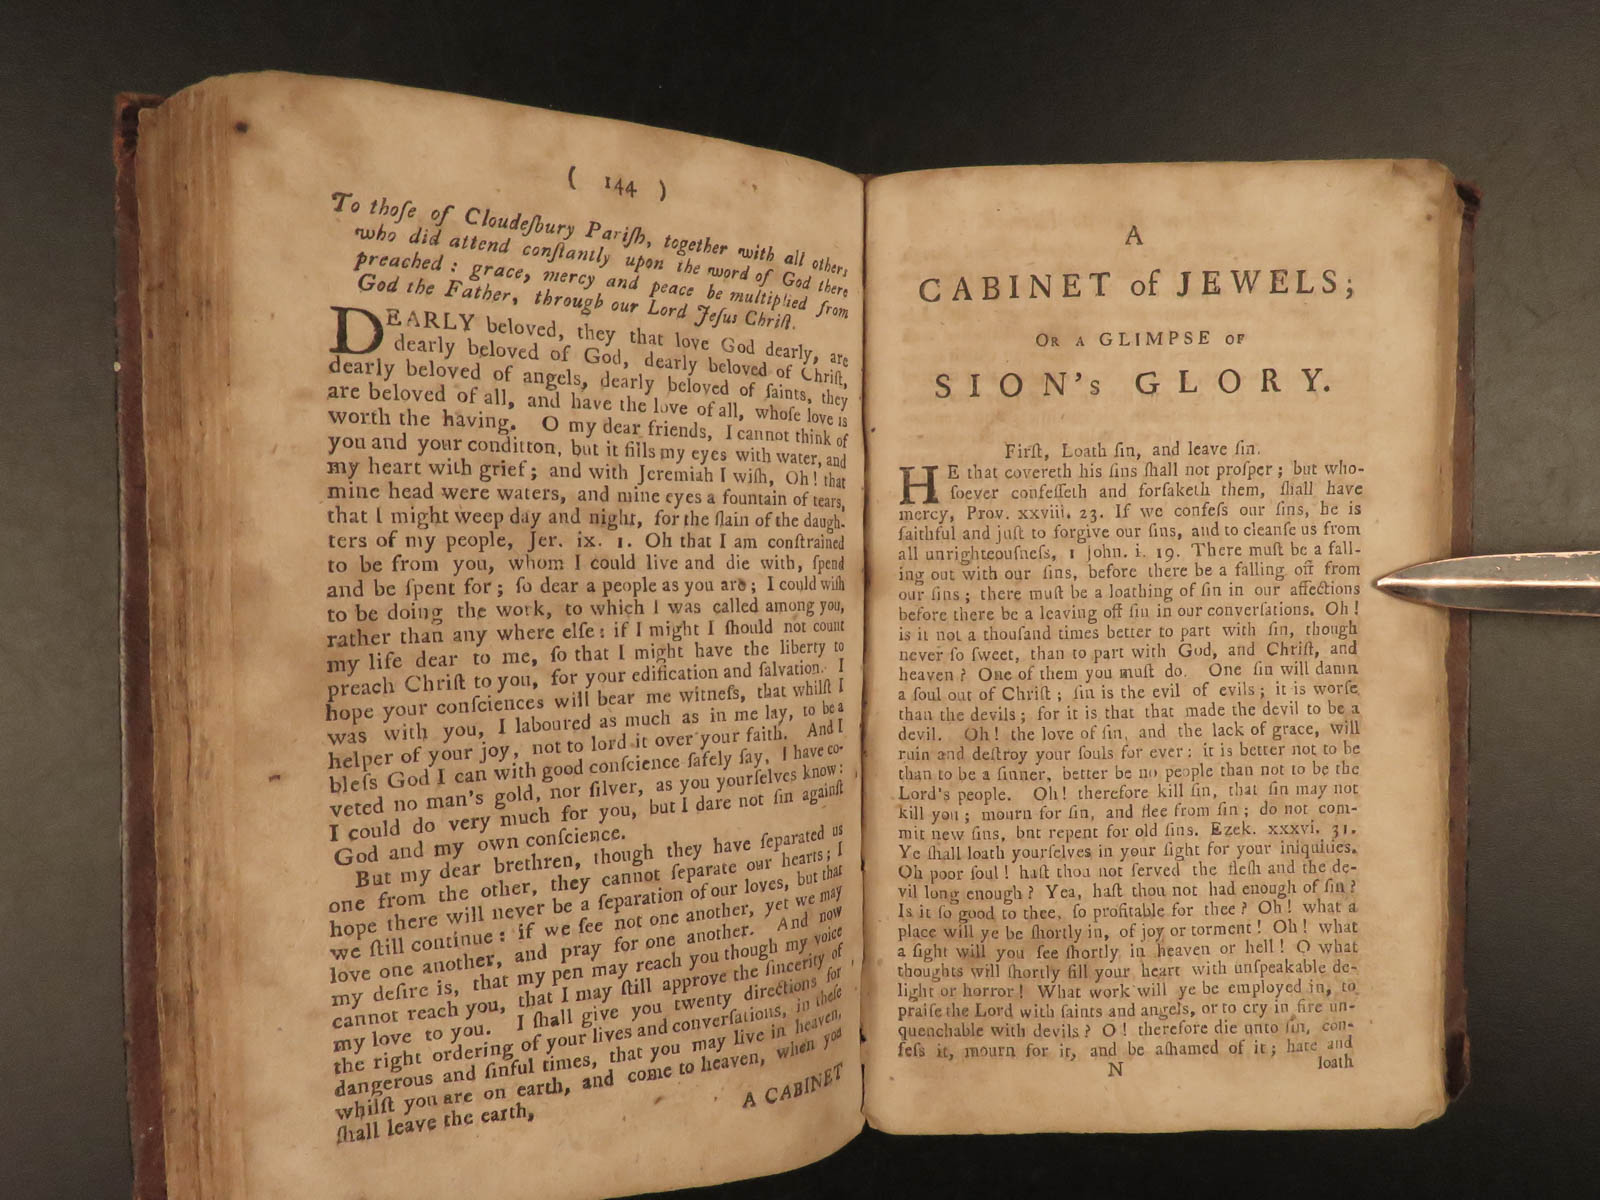 ( 144 )
To thoſe of Cloudeſbury Pariſh, together with all others
who did attend conſtantly upon the word of God there
preached : grace, mercy and peace be multiplied from
God the Father, through our Lord Jeſus Chriſt.
DEARLY beloved, they that love God dearly, are
dearly beloved of God, dearly beloved of Chriſt,
dearly beloved of angels, dearly beloved of ſaints, they
are beloved of all, and have the love of all, whoſe love is
worth the having. O my dear friends, I cannot think of
you and your conditton, but it fills my eyes with water, and
my heart with grief; and with Jeremiah I wiſh, Oh! that
mine head were waters, and mine eyes a fountain of tears,
that I might weep day and night, for the ſlain of the daugh-
ters of my people, Jer. ix. 1. Oh that I am conſtrained
to be from you, whom I could live and die with, ſpend
and be ſpent for; ſo dear a people as you are; I could wiſh
to be doing the work, to which I was called among you,
rather than any where elſe: if I might I ſhould not count
my life dear to me, ſo that I might have the liberty to
preach Chriſt to you, for your edification and ſalvation. I
hope your conſciences will bear me witneſs, that whilſt I
was with you, I laboured as much as in me lay, to be a
helper of your joy, not to lord it over your faith. And I
bleſs God I can with good conſcience ſafely ſay, I have co-
veted no man's gold, nor ſilver, as you yourſelves know:
I could do very much for you, but I dare not ſin againſt
God and my own conſcience.
But my dear brethren, though they have ſeparated us
one from the other, they cannot ſeparate our hearts; I
hope there will never be a ſeparation of our loves, but that
we ſtill continue: if we ſee not one another, yet we may
love one another, and pray for one another. And now
my deſire is, that my pen may reach you though my voice
cannot reach you, that I may ſtill approve the ſincerity of
my love to you. I ſhall give you twenty directions for
the right ordering of your lives and converſations, in theſe
dangerous and ſinful times, that you may live in heaven,
whilſt you are on earth, and come to heaven, when you
ſhall leave the earth,
A CABINET
A
CABINET of JEWELS;
OR A GLIMPSE OF
SION's GLORY.
Firſt, Loath ſin, and leave ſin.
HE that covereth his ſins ſhall not proſper; but who-
ſoever confeſſeth and forſaketh them, ſhall have
mercy, Prov. xxviii. 23. If we confeſs our ſins, he is
faithful and juſt to forgive our ſins, and to cleanſe us from
all unrighteouſneſs, 1 John. i. 19. There muſt be a fall-
ing out with our ſins, before there be a falling off from
our ſins; there muſt be a loathing of ſin in our affections
before there be a leaving off ſin in our converſations. Oh!
is it not a thouſand times better to part with ſin, though
never ſo ſweet, than to part with God, and Chriſt, and
heaven? One of them you muſt do. One ſin will damn
a ſoul out of Chriſt; ſin is the evil of evils; it is worſe
than the devils; for it is that that made the devil to be a
devil. Oh! the love of ſin, and the lack of grace, will
ruin and deſtroy your ſouls for ever: it is better not to be
than to be a ſinner, better be no people than not to be the
Lord's people. Oh! therefore kill ſin, that ſin may not
kill you; mourn for ſin, and flee from ſin; do not com-
mit new ſins, bnt repent for old ſins. Ezek. xxxvi. 31.
Ye ſhall loath yourſelves in your ſight for your iniquities.
Oh poor ſoul! haſt thou not ſerved the fleſh and the de-
vil long enough? Yea, haſt thou not had enough of ſin?
Is it ſo good to thee, ſo profitable for thee? Oh! what a
place will ye be ſhortly in, of joy or torment! Oh! what
a ſight will you ſee ſhortly in heaven or hell! O what
thoughts will ſhortly fill your heart with unſpeakable de-
light or horror! What work will ye be employed in, to
praiſe the Lord with ſaints and angels, or to cry in fire un-
quenchable with devils? O! therefore die unto ſin, con-
feſs it, mourn for it, and be aſhamed of it; hate and
N loath